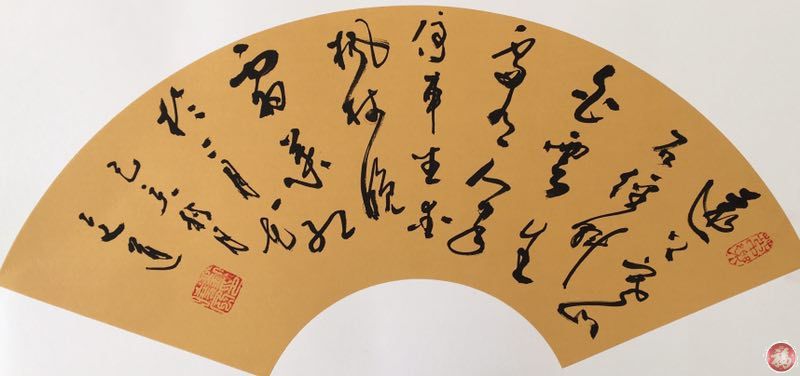 遠上寒山
石徑斜
白雲生
處有人家
停車坐愛
楓林晚
霜葉紅
於二月花
己亥秋月